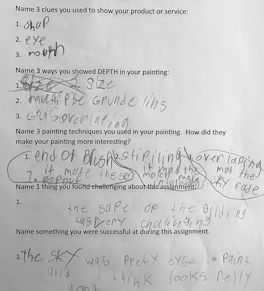 Name 3 clues you used to show your product or service:
1. shop
2. eye
3. mouth
Name 3 ways you showed DEPTH in your painting:
1. size
2. multiple grunde lins
3.
Name 3 painting techniques you used in your painting. How did they
make your painting more interesting?
1. end of brush stipiling overlaping
it made the it made the mad the
Name 1 thing you found challenging about this assignment.
1.
the sape of the bilding
was very challinging
Name something you were successful at during this assignment.
1. The sky was prety eyse to paint
and I think looks relly